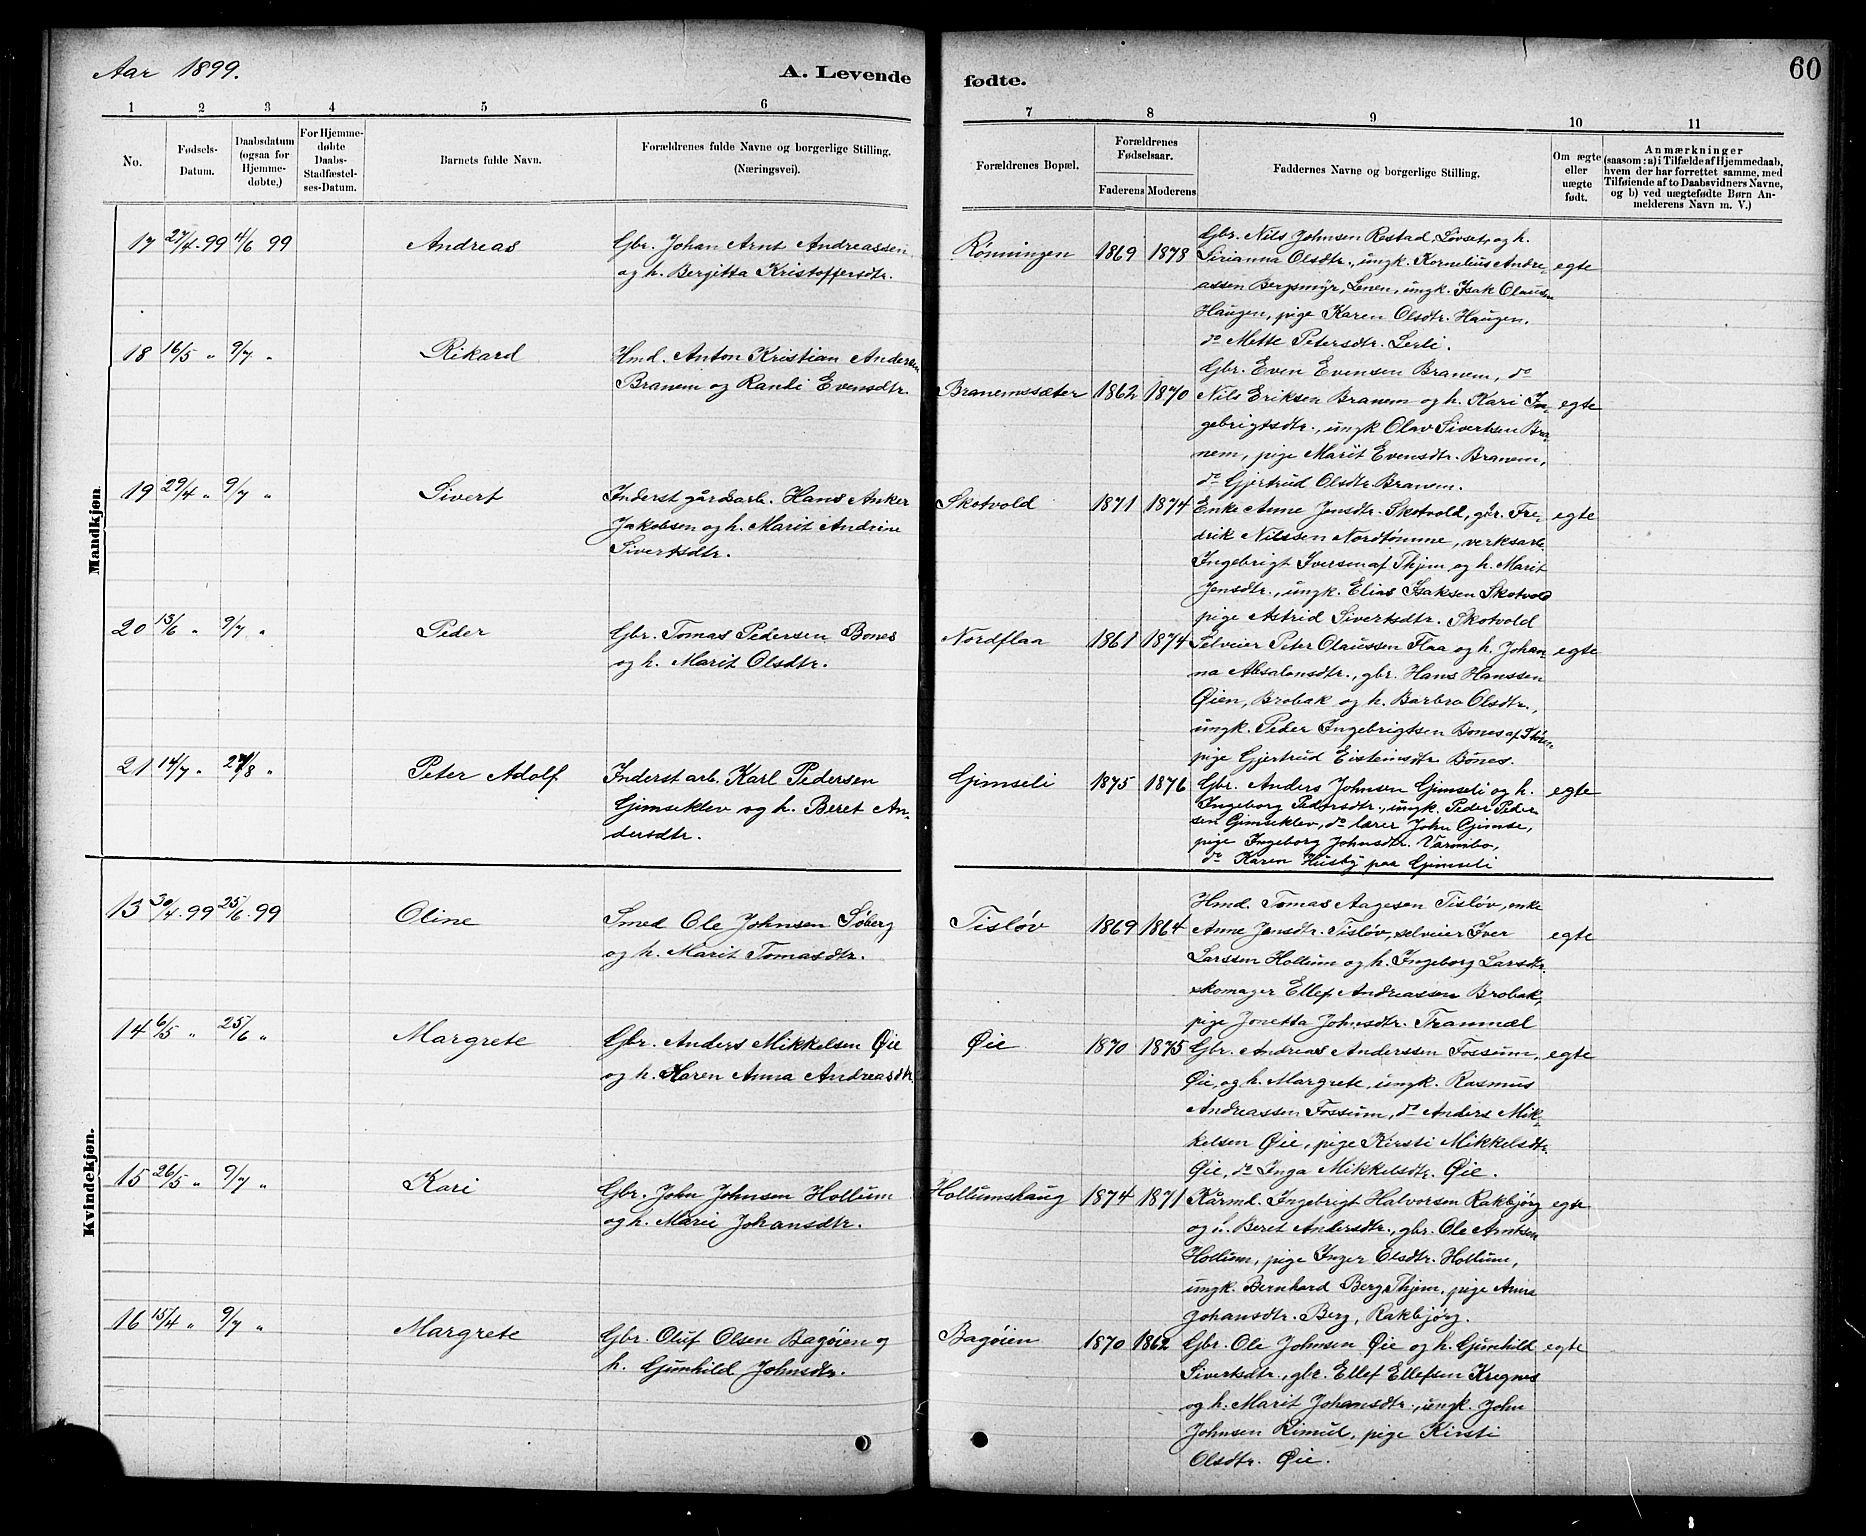 Aar 1899.
A. Levende fødte.
60
1 2 3 4 5 6 7 8 9 10 11
No.
Fødsels-
Datum.
Daabsdatum
(ogsaa for
Hjemme-
døbte.)
For Hjemme-
døbte
Daabs-
Stadfæstel-
ses-Datum.
Barnets fulde Navn.
Forældrenes fulde Navne og borgerlige Stilling.
(Næringsvei).
Forældrenes Bopæl.
Forældrenes
Fødselsaar.
Faderens Moderens
Faddernes Navne og borgerlige Stilling.
Om ægte
eller
uægte
født.
Anmærkninger
(saasom: a) i Tilfælde af Hjemmedaab,
hvem der har forrettet samme, med
Tilføiende af to Daabsvidners Navne,
og b) ved uægtefødte Børn An-
melderens Navn m. V.)
Mandkjøn.
17 27/4 99 4/6 99 Andreas
Gbr. Johan Arnt Andreassen
og h. Bergitta Kristoffersdtr.
Rønningen 1869 1878
Gbr. Nils Johnsen Rostad, Løvset, og h.
Sirianna Olsdtr., ungk. Kornelius Andre-
assen Bergsmyr, Lenen, ungk. Isak Olausen
Haugen, pige Karen Olsdtr. Haugen,
do Mette Petersdtr. Lerli.
egte
18 16/5 " 9/7 " Rikard
Hmd. Anton Kristian Andersen
Branem og Randi Evensdtr.
Branemssæter 1862 1870
Gbr. Even Evensen Branem, do
Nils Eriksen Branem og h. Kari In-
gebrigtsdtr., ungk Olav Sivertsen Bra-
nem, pige Marit Evensdtr. Branem,
do Gjertrud Olsdtr. Branem.
egte
19 29/4 " 9/7 " Sivert
Inderst gårdsarb. Hans Anker
Jakobsen og h. Marit Andrine
Sivertsdtr.
Skotvold 1871 1874
Enke Anne Jonsdtr. Skotvold, gbr. Fre-
drik Nilssen Nordtømme, verksarb.
Ingebrigt Iversen af Thjem og h. Marit
Jonsdtr., ungk. Elias Isaksen Skotvold
pige Astrid Sivertsdtr. Skotvold
egte
20 13/6 " 9/7 " Peder
Gbr. Tomas Pedersen Bones
og h. Marit Olsdtr.
Nordflaa 1861 1874
Selveier Peter Olaussen Flaa og h. Johan-
na Absalonsdtr., gbr. Hans Hanssen
Øien, Brobak og h. Barbro Olsdtr.,
ungk. Peder Ingebrigtsen Bones af Støren
pige Gjertrud Eistensdtr Bones.
egte
21 14/7 " 27/8 " Peter Adolf
Inderst arb. Karl Pedersen
Gimseklev og h. Beret An-
dersdtr.
Gimseli 1875 1876
Gbr. Anders Johnsen Gimseli og h.
Ingeborg Pedersdtr., ungk. Peder Peder
sen Gimseklev, do lærer John Gimse,
pige Ingeborg Johnsdtr. Varmbo,
do Karen Husby paa Gimseli
egte
Kvindekjøn.
13 30/4 99 25/6 99 Oline
Smed Ole Johnsen Søberg
og h. Marit Tomasdtr.
Tisløv 1869 1864
Hmd. Tomas Aagesen Tisløv, enke
Anne Jonsdtr. Tisløv, selveier Iver
Larssen Hollum og h. Ingeborg Larsdtr.
skomager Ellef Andreassen Brobak,
pige Jonetta Johnsdtr. Tranmæl
egte
14 6/5 " 25/6 " Margrete
Gbr. Anders Mikkelsen Øie
og h. Karen Anna Andreasdtr.
Øie 1870 1875
Gbr. Andreas Anderssen Fossum,
Øie, og h. Margrete, ungk. Rasmus
Andreassen Fossum, do Anders Mik-
kelsen Øie, pige Kirsti Mikkelsdtr.
Øie, do Inga Mikkelsdtr. Øie.
egte
15 26/5 " 9/7 " Kari
Gbr. John Johnsen Hollum
og h. Marie Johansdtr.
Hollumshaug 1874 1871
Kårmd. Ingebrigt Halvorsen Rakbjørg
og h. Beret Andersdtr., gbr. Ole Arntsen
Hollum, pige Inger Elsdtr. Hollum,
ungk. Bernhard Berg, Thjem, pige Anna
Johansdtr. Berg, Rakbjørg.
egte
16 15/4 " 9/7 " Margrete
Gbr. Oluf Olsen Bagøien og
h. Gunhild Johnsdtr.
Bagøien 1870 1862
Gbr. Ole Johnsen Øie og h. Gunhild
Sivertsdtr., gbr. Ellef Ellefsen Kregnes
og h. Marit Johansdtr., ungk. John
Johnsen Rimul, pige Kirsti
Olsdtr. Øie.
egte